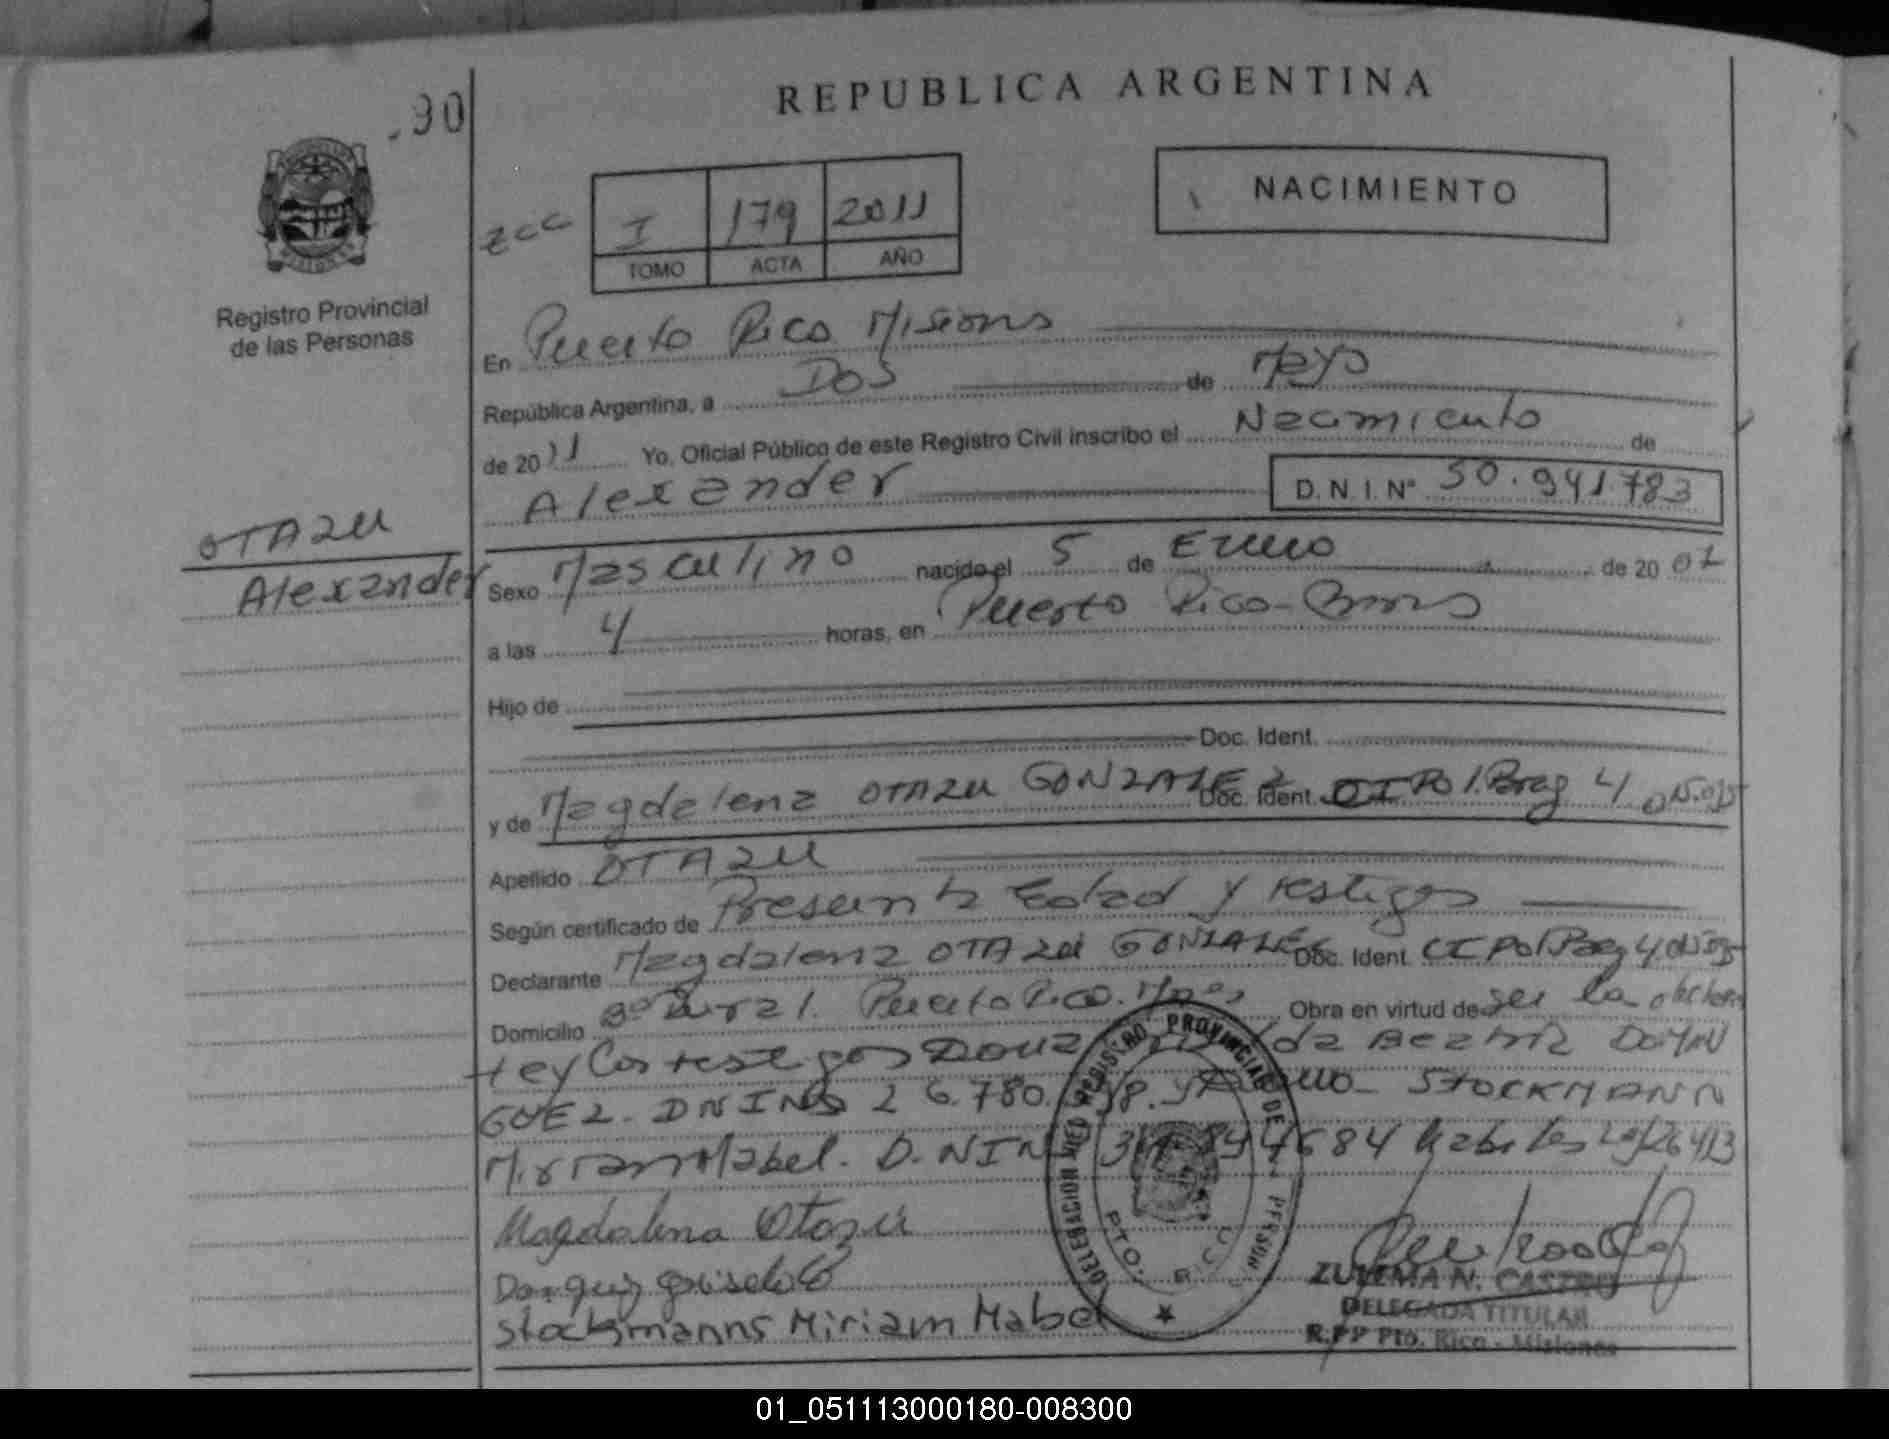 REPUBLICA ARGENTINA
.90
NACIMIENTO
I 179 2011
TOMO ACTA AÑO
Registro Provincial
de las Personas
En Puerto Rico Misions
República Argentina, a DOS de Mayo
de 2011 Yo, Oficial Público de este Registro Civil inscribo el Nacimiento de
Alexander D.N.I.Nº 50.941.783
OTAZU
Alexander
Sexo Masculino nacido el 5 de Enero de 20 07
a las 4 horas, en Puerto Rico-
Hijo de
Doc. Ident.
y de Magdalena OTAZU GONZALEZ Doc. Ident. CI Pol. Parag 4
Apellido OTAZU
Según certificado de Presunta Edad y testigos
Declarante Magdalena OTAZU GONZALEZ Doc. Ident CI Pol Parag 4
Domicilio Bº Rural. Puerto Rico. Obra en virtud de ser la
y los testigos Beatriz DOMIN
GUEZ. DNI Nº 26.780. STOCKMANN
Miriam Mabel. D.NI Nº
Magdalena Otazú
Stockmanns Miriam Mabel
DELEGACION REGISTRO PROVINCIAL DE PERSON
PTO. RICO
ZULEMA N. CASTRO
DELEGADA TITULAR
R.PP Pto. Rico - Misiones
01_051113000180-008300